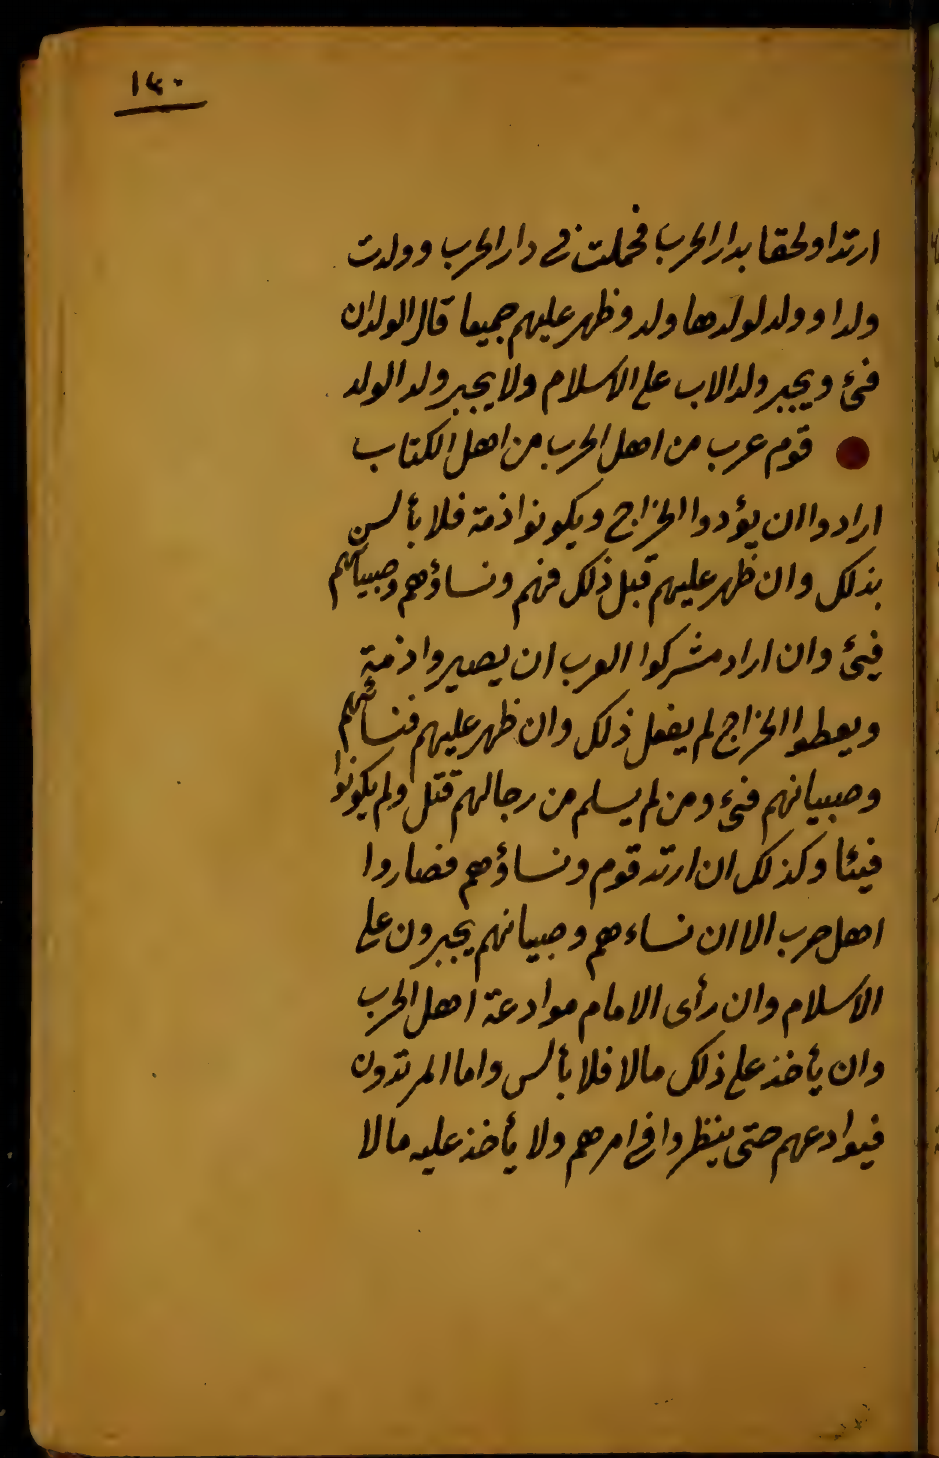 ١٤٠
ارتدا ولحقا بدار الحرب فحملت في دار الحرب وولدت
ولدا وولد لولدها ولد وظهر عليهم جميعا قال الولدان
فئ ويجبر ولد الاب على الاسلام ولا يجبر ولد الولد
قوم عرب من اهل الحرب من اهل الكتاب
ارادوا ان يؤدوا الخراج ويكونوا ذمة فلا بأس
بذلك وان ظهر عليهم قبل ذلك فهم ونساؤهم وصبيانهم
فيئ وان اراد مشركوا العرب ان يصيروا ذمة
ويعطوا الخراج لم يفعل ذلك وان ظهر عليهم فنسائهم
وصبيانهم فئ ومن لم يسلم من رجالهم قتل ولم يكونوا
فيئا وكذلك ان ارتد قوم ونساؤهم فصاروا
اهل حرب الا ان نساءهم وصبيانهم يجبرون على
الاسلام وان رأى الامام موادعة اهل الحرب
وان يأخذ على ذلك مالا فلا بأس واما المرتدون
فيوادعهم حتى ينظروا في امرهم ولا يأخذ عليه مالا